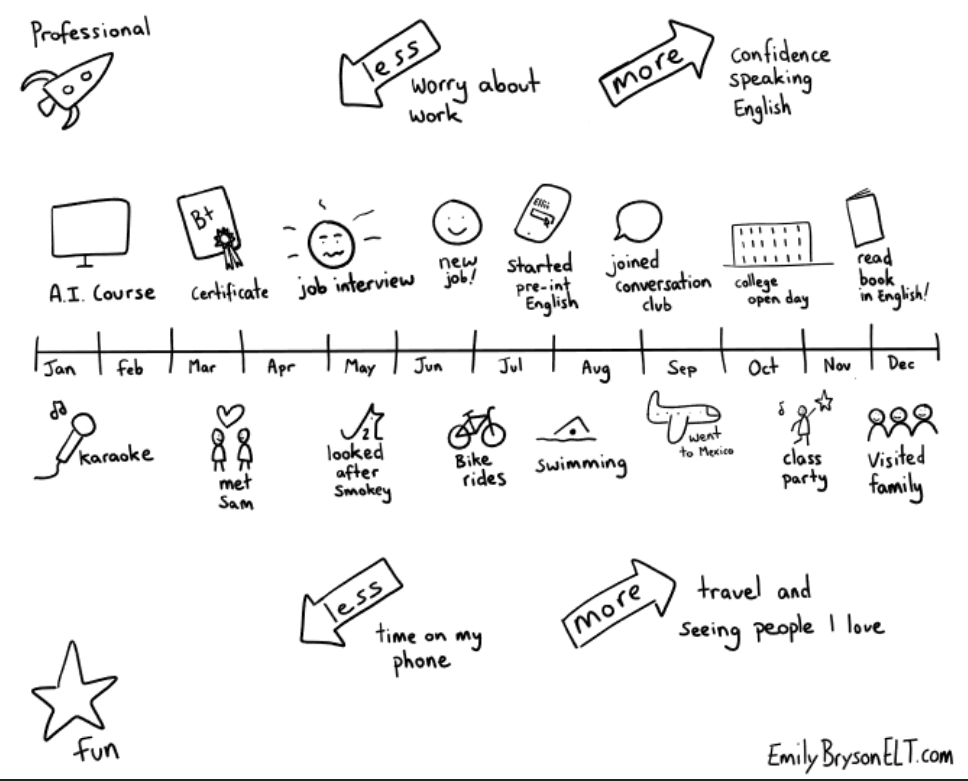 Professional
less
worry about
work
more
confidence
speaking
English
B+
Ellii
A.I. Course
Certificate
job interview
new
job!
Started
pre-int
English
joined
conversation
club
college
open day
read
book
in English!
Jan
feb
Mar
Apr
May
Jun
Jul
Aug
Sep
Oct
Nov
Dec
karaoke
met
Sam
looked
after
Smokey
Bike
rides
swimming
went
to Mexico
class
party
Visited
family
less
time on my
phone
more
travel and
seeing people I love
fun
EmilyBrysonELT.com